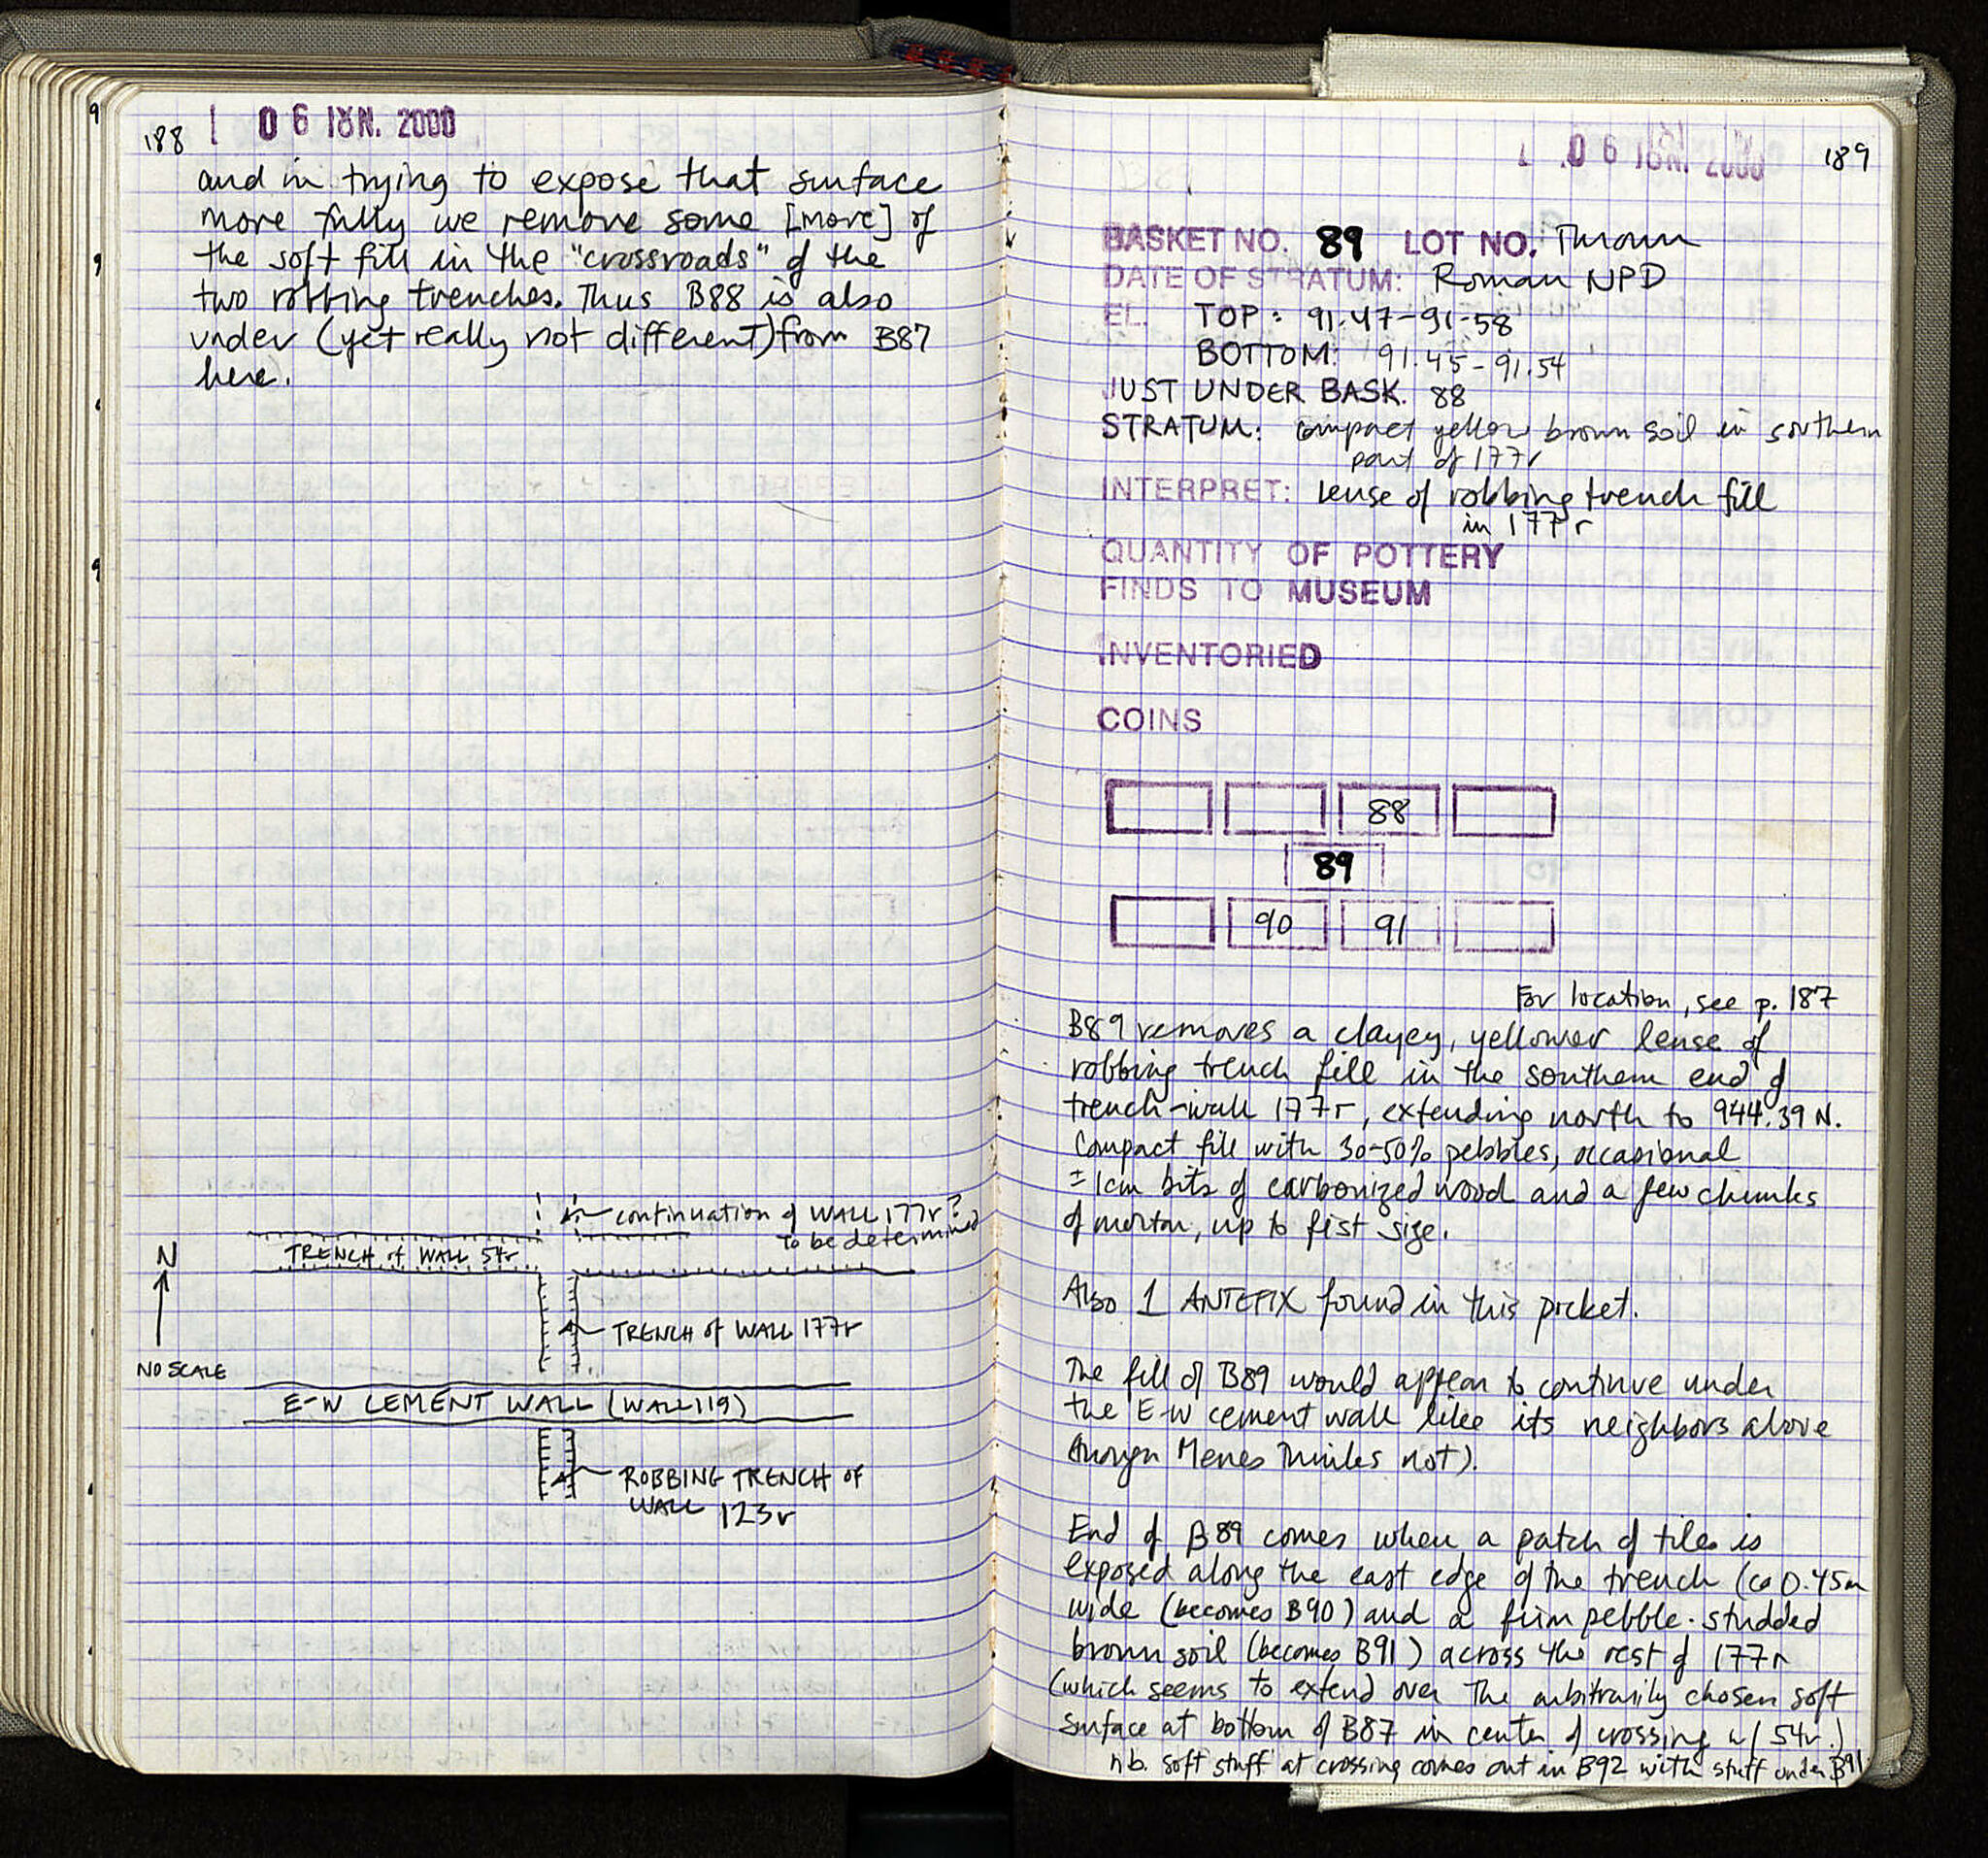 188
06 IOYN. 2000
and in trying to expose that surface
more fully we remove some [more] of
the soft fill in the "crossroads" of the
two robbing trenches. Thus B88 is also
under (yet really not different) from B87
here.
continuation of WALL 177r?
to be determined
TRENCH of WALL 54r
N
TRENCH of WALL 177r
NO SCALE
E-W CEMENT WALL (WALL 119)
ROBBING TRENCH OF
WALL 123r
06 IOYN. 2000
189
BASKET NO. 89 LOT NO. Thrown
DATE OF STRATUM: Roman NPD
EL. TOP: 91.47-91.58
BOTTOM: 91.45-91.54
JUST UNDER BASK. 88
STRATUM: compact yellow brown soil in southern
part of 177r
INTERPRET: lense of robbing trench fill
in 177r
QUANTITY OF POTTERY
FINDS TO MUSEUM
INVENTORIED
COINS
88
89
90 91
For location, see p. 187
B89 removes a clayey, yellower lense of
robbing trench fill in the southern end of
trench-wall 177r, extending north to 944.39 N.
Compact fill with 30-50% pebbles, occasional
±1cm bits of carbonized wood and a few chunks
of mortar, up to fist size.
Also 1 ANTEFIX found in this pocket.
The fill of B89 would appear to continue under
the E-W cement wall like its neighbors above
thinks not).
End of B89 comes when a patch of tiles is
exposed along the east edge of the trench (ca 0.45m
wide (becomes B90) and a firm pebble-studded
brown soil (becomes B91) across the rest of 177r
(which seems to extend over the arbitrarily chosen soft
surface at bottom of B87 in center of crossing w/ 54r.)
n.b. soft stuff at crossing comes out in B92 with stuff under B91